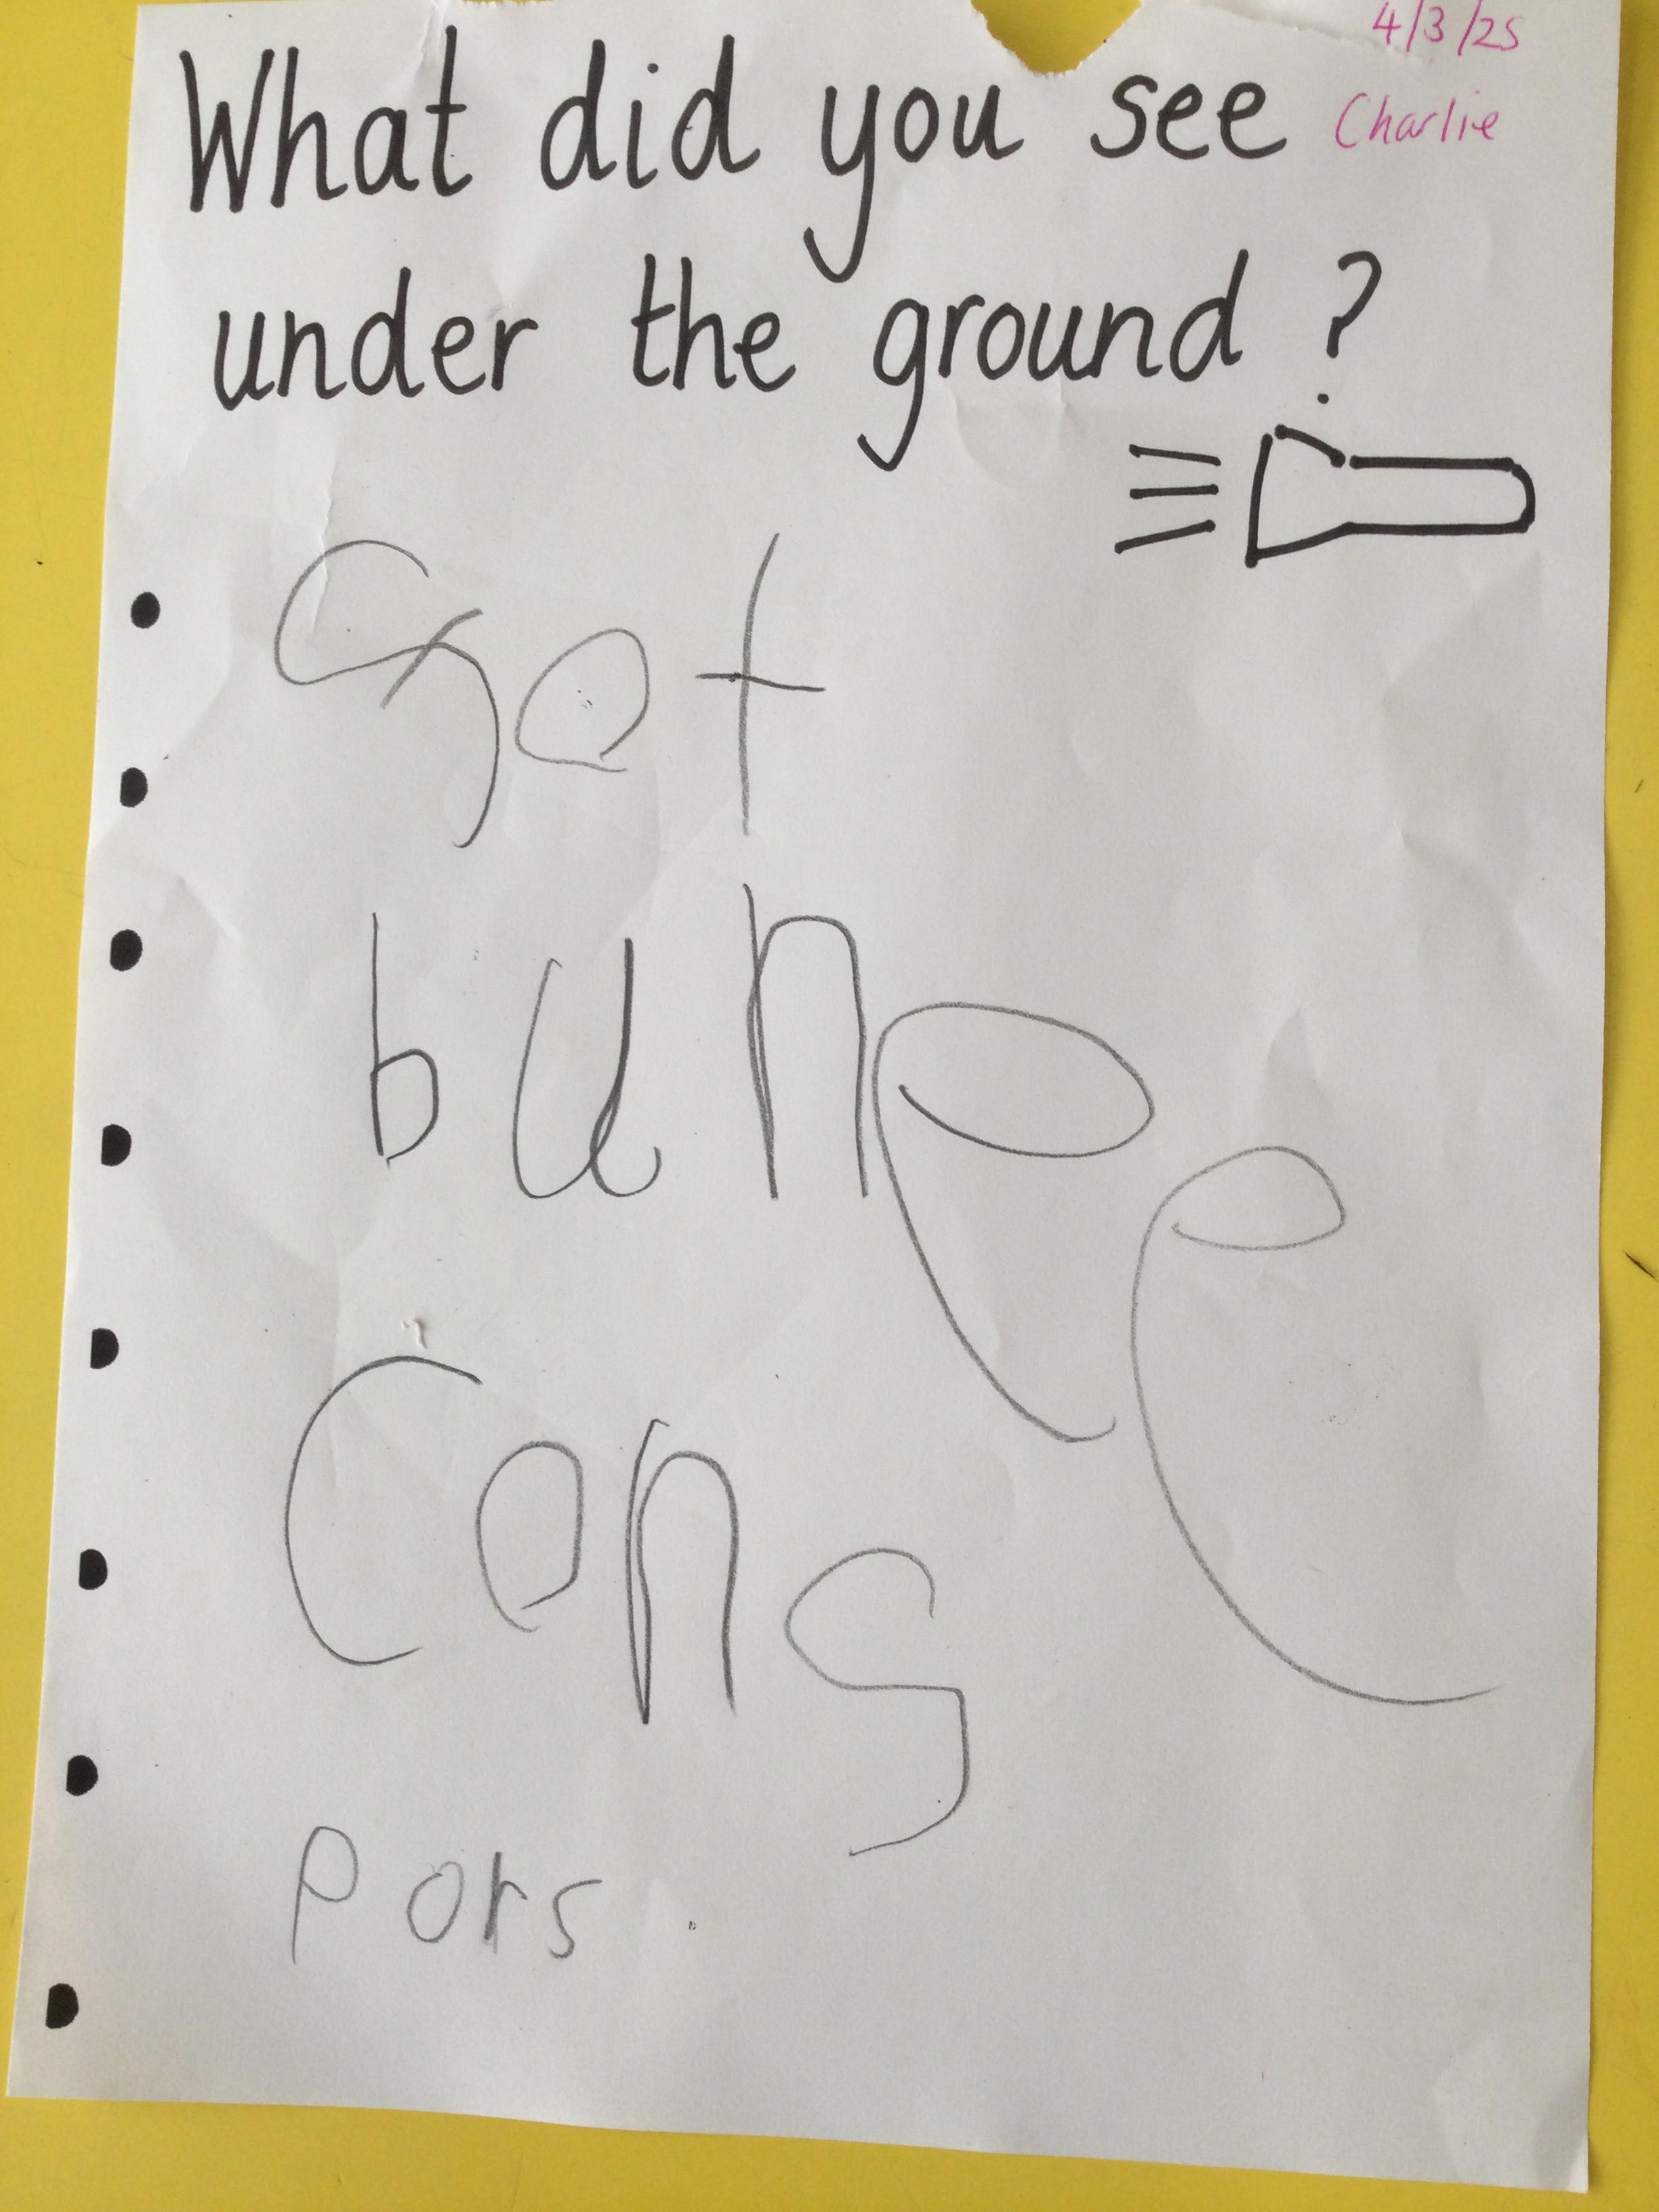 4/3/25
What did you see Charlie
under the ground ?
got
bunee
cons
pors